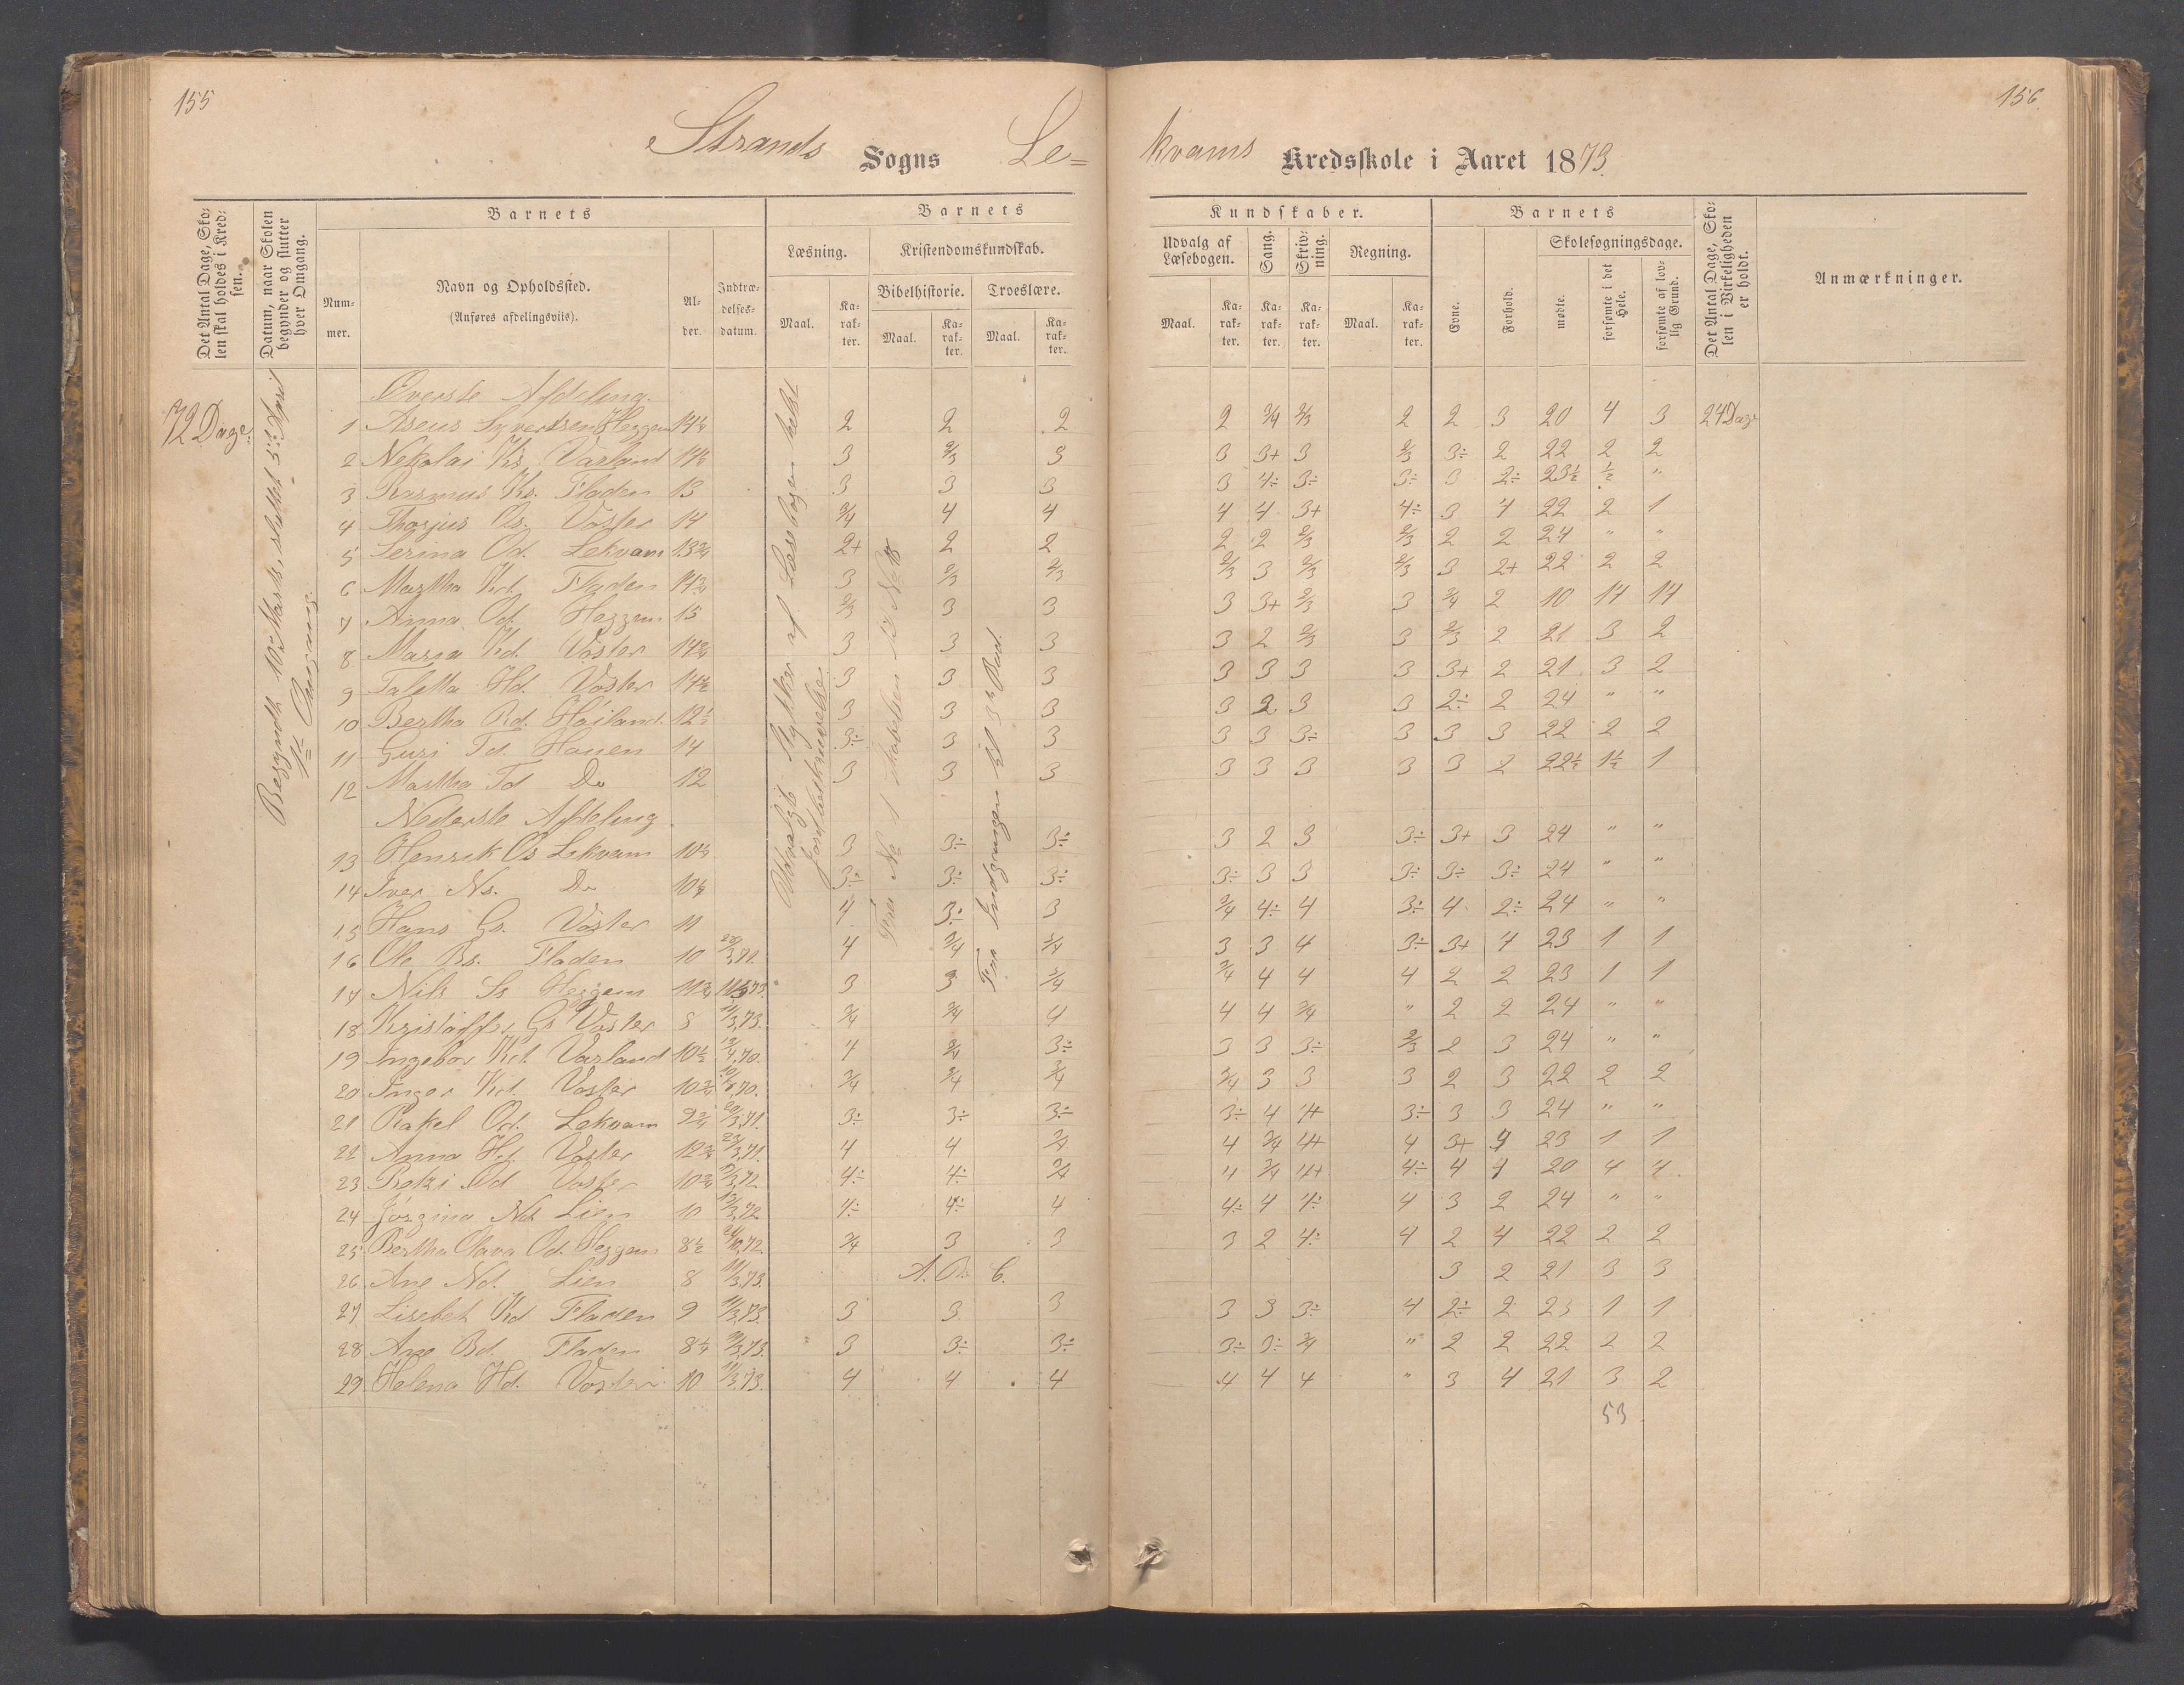 155
156
Strands Sogns Le=
kvams Kredsskole i Aaret 1873.
Det Antal Dage, Sko-
len skal holdes i Kred-
sen.
Datum, naar Skolen
begynder og slutter
hver Omgang.
Barnets
Num-
mer.
Navn og Opholdssted.
(Anføres afdelingsviis).
Al-
der.
Indtræ-
delses-
datum.
Barnets
Læsning.
Kristendomskundskab.
Bibelhistorie. Troeslære.
Maal. Ka-
rak-
ter. Maal. Ka-
rak-
ter. Maal. Ka-
rak-
ter.
Kundskaber.
Udvalg af
Læsebogen.
Sang.
Skriv-
ning.
Regning.
Maal. Ka-
rak-
ter. Ka-
rak-
ter. Ka-
rak-
ter. Maal. Ka-
rak-
ter.
Barnets
Evne.
Forhold.
Skolesøgningsdage.
mødte.
forsømte i det
Hele.
forsømte af lov-
lig Grund.
Det Antal Dage, Sko-
len i Virkeligheden
er holdt.
Anmærkninger.
72 Dage.
Begyndt 10de Marts, sluttet 5te April
1ste Omgang.
Øverste Afdeling.
1 Aseus Syvertsen Heggem 14¼ 2 2 2 2 3/4 2/3 2 2 3 20 4 3 24 Dage
2 Nekolai Ks. Varland 14½ 3 2/3 3 3 3+ 3 2/3 3÷ 2 22 2 2
3 Rasmus Ks. Fladen 13 3 3 3 3 4÷ 3÷ 3÷ 3 2÷ 23½ ½ "
4 Thorjus Os. Voster 14 3/4 4 4 4 4 3+ 4÷ 3 4 22 2 1
5 Serina Od. Lekvam 13¾ 2+ 2 2 2 2 2/3 2/3 2 2 24 " "
6 Martha Kd. Fladen 14¾ 3 2/3 2/3 2/3 3 2/3 2/3 3 2+ 22 2 2
7 Anna Od. Heggem 15 2/3 3 3 3 3+ 2/3 3 3/4 2 10 14 14
8 Maria Kd. Voster 14¾ 3 3 3 3 2 2/3 3 2/3 2 21 3 2
9 Taletta Hd. Voster 14½ 3 3 3 3 3 3 3 3+ 2 21 3 2
10 Bertha Rd. Höiland. 12½ 3 3 3 3 2 3 3 2÷ 2 24 " "
11 Guri Td Hauen 14 3÷ 3 3 3 3 3÷ 3 3 3 22 2 2
12 Martha Td Do 12 3 3 3 3 3 3 3 3 2 22½ 1½ 1
Nederste Afdeling
13 Henrik Os Lekvam 10½ 3 3÷ 3÷ 3 2 3 3÷ 3+ 3 24 " "
14 Iver Ns. Do 10¼ 3÷ 3÷ 3÷ 3÷ 3 3 3÷ 3÷ 3÷ 24 " "
15 Hans Gs. Voster 11 4 3÷ 3 3/4 4÷ 4 3÷ 4 2÷ 24 " "
16 Ole Bs. Fladen 10 23/3,71. 4 3/4 3/4 3 3 4 3÷ 3+ 4 23 1 1
17 Nils Ss Heggem 11¾ 11/3 73. 3 3 3/4 3/4 4 4 4 2 2 23 1 1
18 Kristoffer Gs Voster 8 11/3,73. 3/4 3/4 4 4 4 3/4 " 2 2 24 " "
19 Ingebor Kd. Varland 10½ 12/4,70. 4 3/4 3÷ 3 3 3÷ 2/3 2 3 24 " "
20 Inger Kd. Voster 10¾ 3/4 3/4 3/4 3/4 3 3 3 2 3 22 2 2
21 Rakel Od. Lekvam 9¾ 20/3,71. 3÷ 3÷ 3÷ 3÷ 4 4+ 3÷ 3 3 24 " "
22 Anna Hd. Voster 12¾ 23/3,71. 4 4 3/4 4 3/4 4+ 4 3+ 4 23 1 1
23 Od Voster 10¾ 4÷ 4÷ 3/4 4 3/4 4+ 4÷ 4 4 20 4 4
24 Jörgina Nd. Lien 10 13/3,72 4÷ 4÷ 4 4÷ 4 4÷ 4 3 2 24 " "
25 Bertha Olava Od. Heggem 8½ 3/4 3 3 3 2 4÷ 4 2 4 22 2 2
26 Ane Nd. Lien 8 11/3,73. A. B. C. 3 2 21 3 3
27 Lisebet Kd Fladen 9 11/3,73. 3 3 3 3 3 3÷ 4 2÷ 2 23 1 1
28 Ane Bd. Fladen 8¼ 11/3,73. 3 3÷ 3÷ 3÷ 3÷ 3/4 " 2 2 22 2 2
29 Helena Hd. Voster 10 11/3,73. 4 4 4 4 4 4 " 3 4 21 3 2
53
Udvalgte Stykker af Læsebogen
Jordbeskrivelse.
Fra Indgangen til 3die Bud.